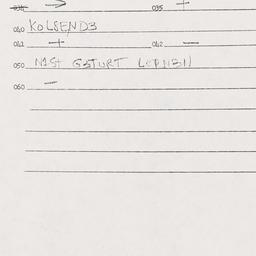 034 → 035 +
040 KOLSEND3
041 + 042 —
050 N1St G3TURT
060 —